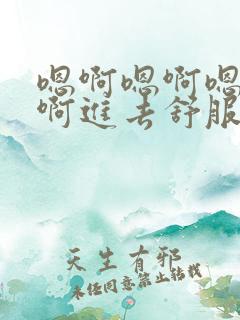 嗯啊嗯啊嗯
啊進去舒服
天生有邪
未经同意禁止转载